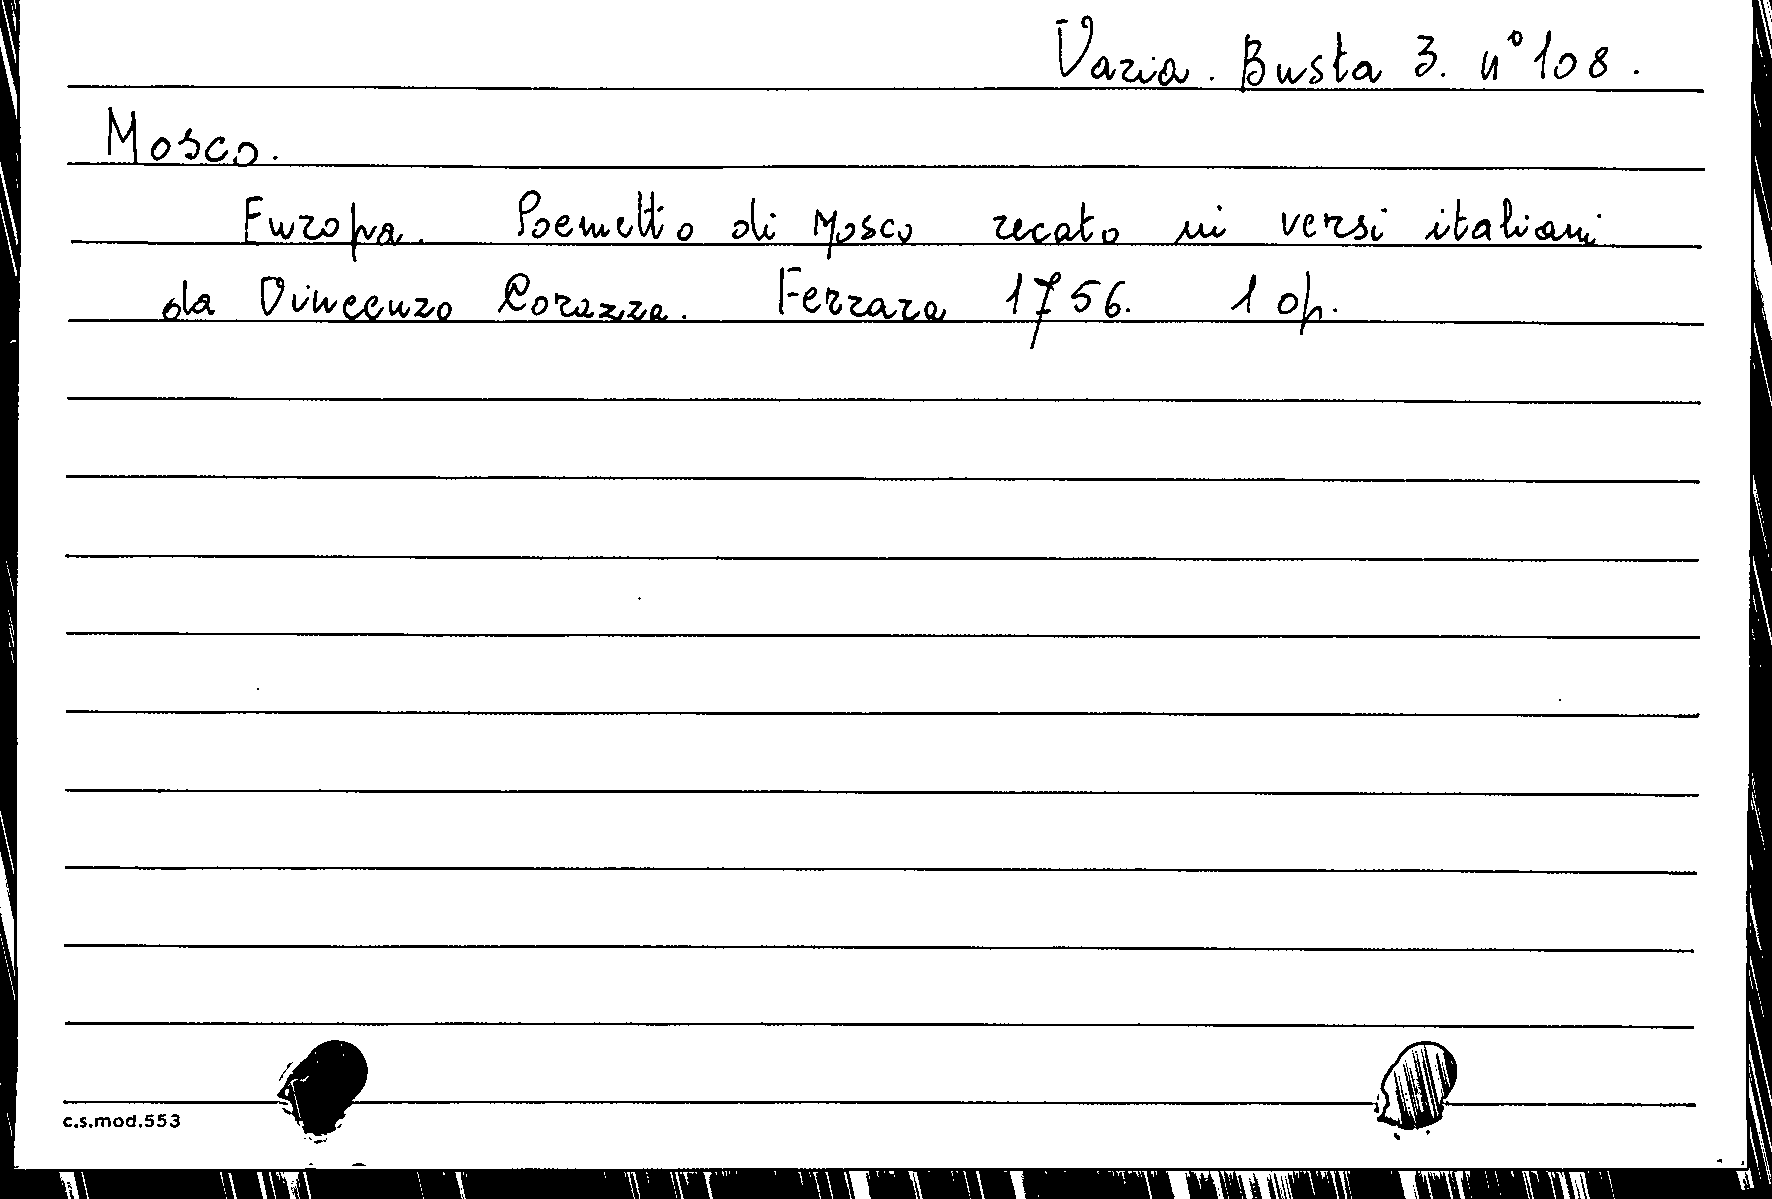 Varia. Busta 3. n° 108.
Mosco.
Europa. Poemetto di Mosco recato in versi italiani
da Vincenzo Corazza. Ferrara 1756. 1 op.
c.s.mod.553